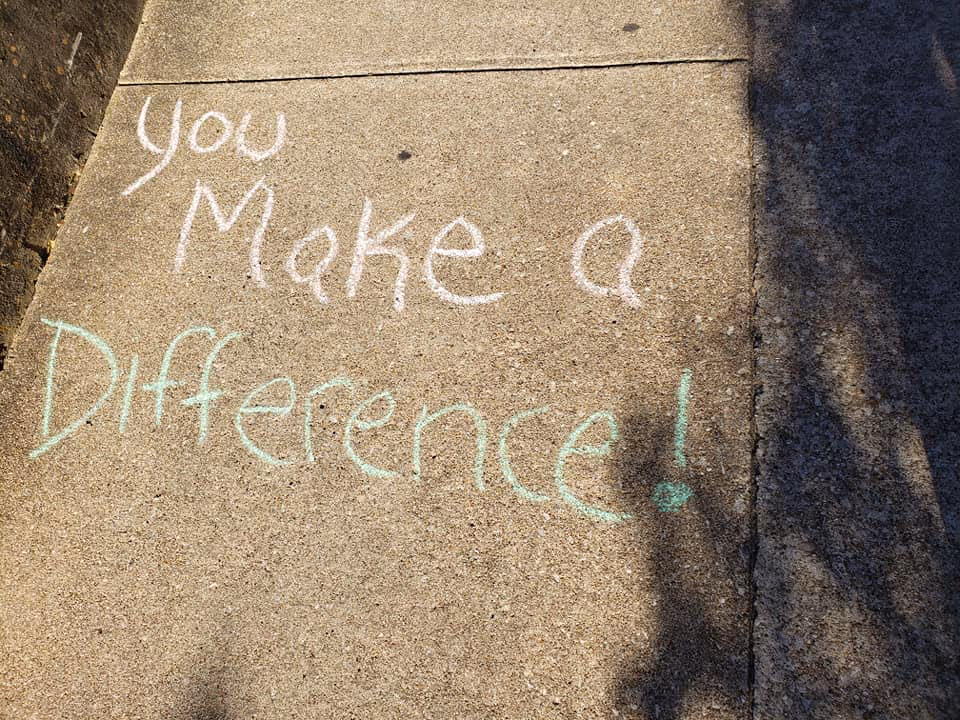 you
Make a
Difference!